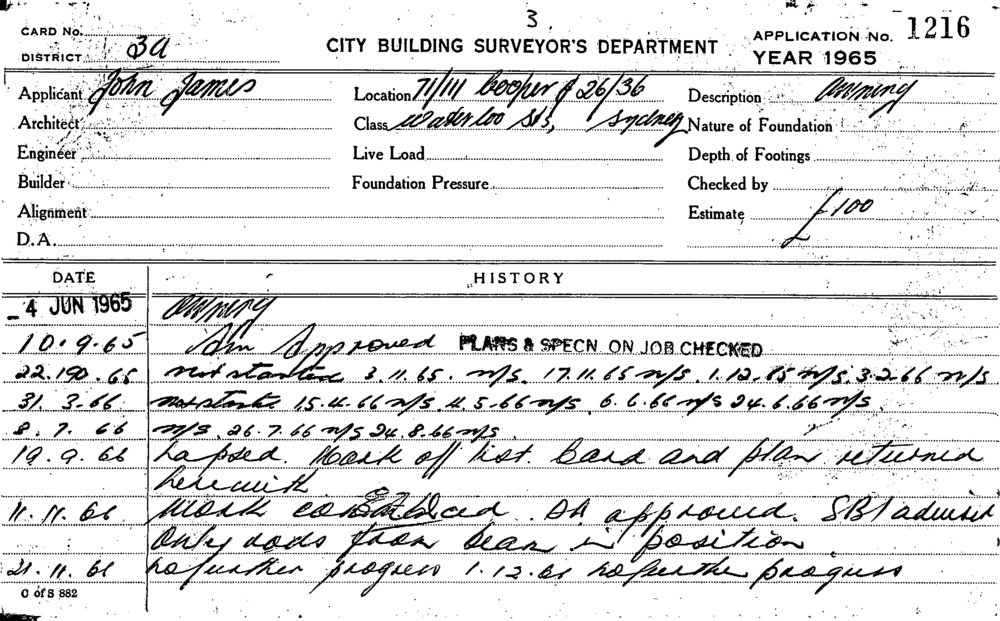 3.
CARD No.
DISTRICT 3A
CITY BUILDING SURVEYOR'S DEPARTMENT
APPLICATION No. 1216
YEAR 1965
Applicant John James
Location 71/111 Cooper & 26/36
Description Awning
Architect
Class Waterloo Sts, Sydney
Nature of Foundation
Engineer
Live Load
Depth of Footings
Builder
Foundation Pressure
Checked by
Alignment
Estimate £100
£
D.A.
DATE HISTORY
4 JUN 1965 Awning
10.9.65 Approved PLANS & SPECN. ON JOB CHECKED
22.10.65 not started 3.11.65. n/s. 17.11.65 n/s. 1.12.65 n/s. 3.2.66 n/s
31.3.66 not started 15.4.66 n/s. 4.5.66 n/s. 6.6.66 n/s 24.6.66 n/s.
8.7.66 n/s. 26.7.66 n/s 24.8.66 n/s.
19.9.66 Lapsed. Mark off list. Card and plan returned
herewith
11.11.66 Work DA approved. SBI
Only rods from beam in position
21.11.66 no further progress 1.12.66 no further progress
C of S 882